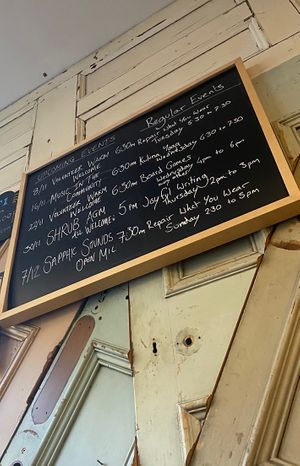 UPCOMING EVENTS
8/11 VOLUNTEER WARM WELCOME 6:30m
14/11 MUSIC IN THE COMMUNITY 6:30m
23/11 VOLUNTEER WARM WELCOME 6:30m
30/11 SHRUB AGM ALL WELCOME 5pm
7/12 SAPPHIC SOUNDS OPEN MIC 7:30m
Regular Events
Repair What You Wear
Tuesday 5:30 - 7:30
Yoga
Wednesday 6:30 to 7:30
Board Games
Wednesday 4pm to 6pm
Joy Of Writing
Thursday 2pm to 3pm
Repair What You Wear
Sunday 2:30 to 5pm